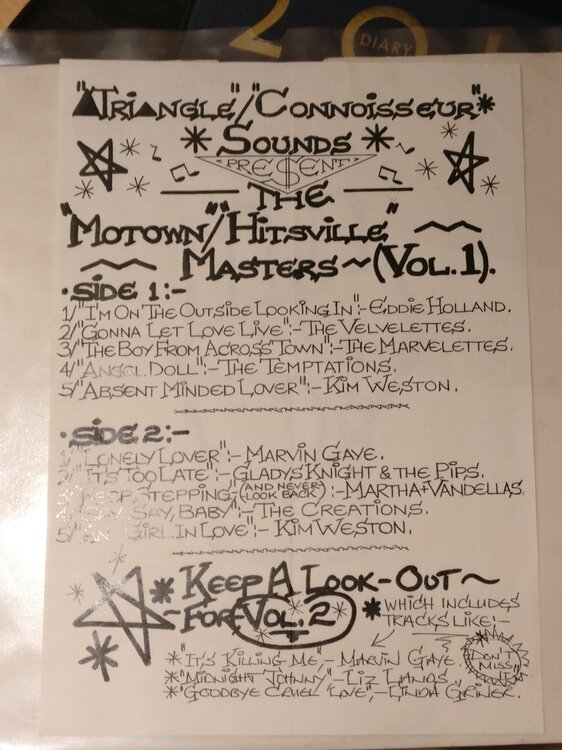 2 0 1
DIARY
"TRIANGLE"/"CONNOISSEUR"*
* SOUNDS *
"PRE$ENT"
THE
"MOTOWN"/"HITSVILLE"
MASTERS ~ (VOL. 1).
• SIDE 1:-
1/"I'M ON THE OUTSIDE LOOKING IN":- EDDIE HOLLAND.
2/"GONNA LET LOVE LIVE":- THE VELVELETTES.
3/"THE BOY FROM ACROSS TOWN":- THE MARVELETTES.
4/"ANGEL DOLL":- THE TEMPTATIONS.
5/"ABSENT MINDED LOVER":- KIM WESTON.
• SIDE 2:-
"LONELY LOVER":- MARVIN GAYE.
"IT'S TOO LATE":- GLADYS KNIGHT & THE PIPS.
STEPPING (AND NEVER LOOK BACK) :- MARTHA + VANDELLAS.
SAY, BABY":- THE CREATIONS.
5/ GIRL IN LOVE":- KIM WESTON.
* KEEP A LOOK-OUT ~
~ FOR VOL. 2
* WHICH INCLUDES
TRACKS LIKE:-
*"IT'S KILLING ME",- MARVIN GAYE.
*"MIDNIGHT JOHNNY"- LIZ LANDS.
*"GOODBYE CRUEL LOVE",- LINDA GRINER.
DON'T
MISS
IT